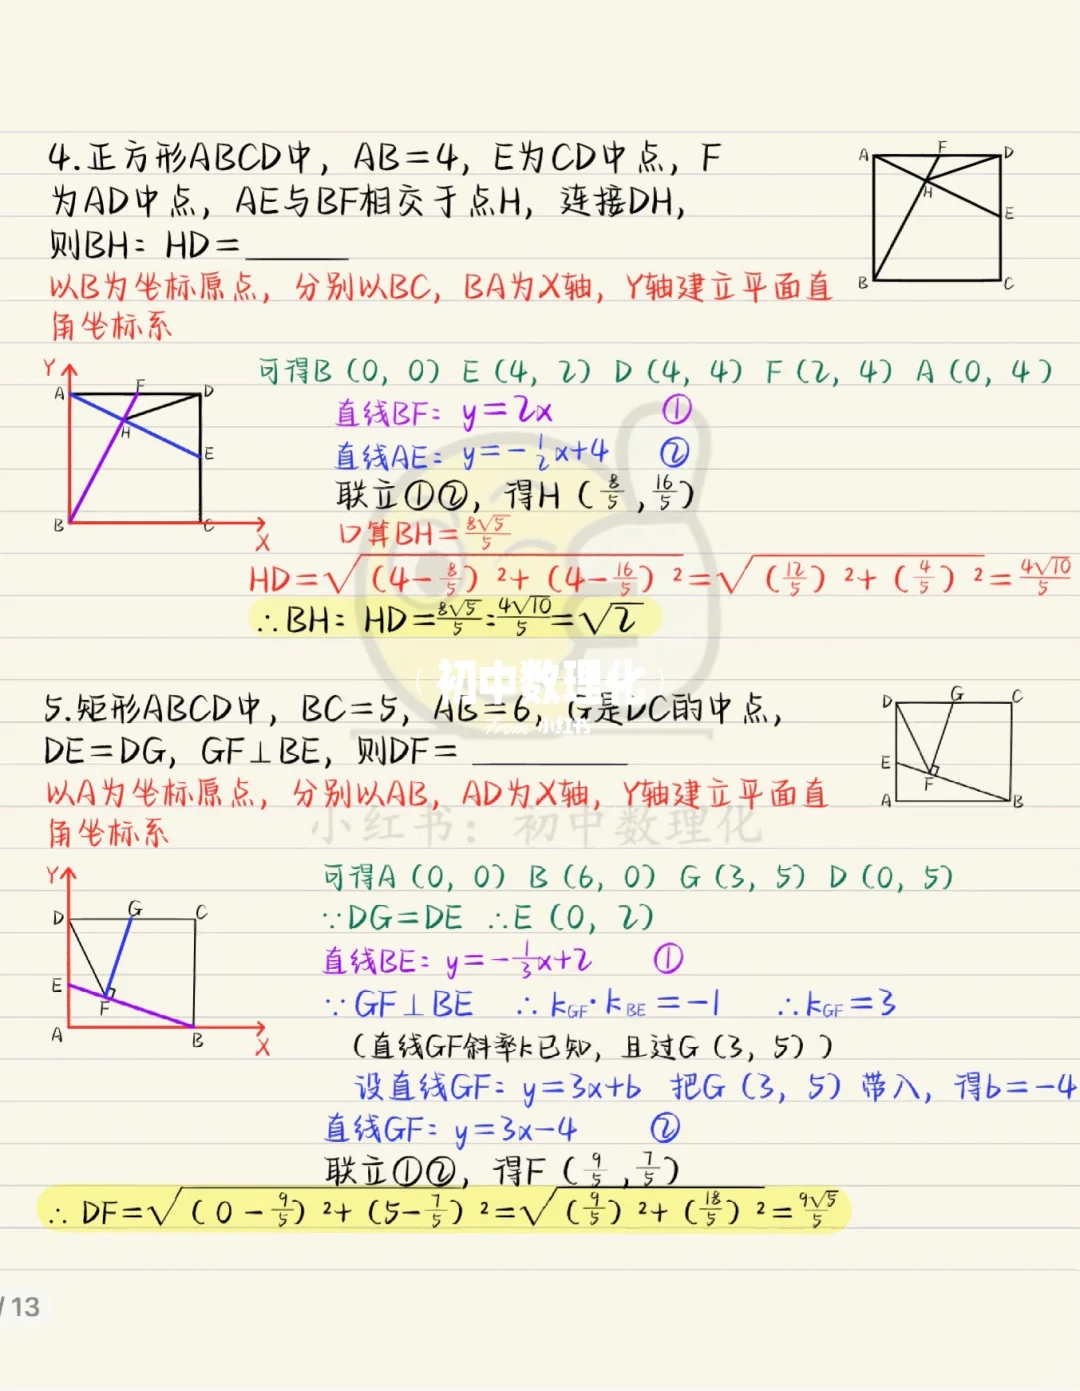 4.正方形ABCD中，AB=4，E为CD中点，F
为AD中点，AE与BF相交于点H，连接DH，
则BH：HD=______
A F D
H
E
B C
以B为坐标原点，分别以BC，BA为X轴，Y轴建立平面直
角坐标系
Y
A F D
H
E
B C
X
可得B（0，0）E（4，2）D（4，4）F（2，4）A（0，4）
直线BF：y=2x ①
直线AE：y=-1/2x+4 ②
联立①②，得H（8/5,16/5）
口算BH=8√5/5
HD=√（4-8/5）²+（4-16/5）²=√（12/5）²+（4/5）²=4√10/5
∴BH：HD=8√5/5:4√10/5=√2
初中数理化
From 小红书
5.矩形ABCD中，BC=5，AB=6，G是DC的中点，
DE=DG，GF⊥BE，则DF=______
D G C
E
F
A B
以A为坐标原点，分别以AB，AD为X轴，Y轴建立平面直
角坐标系
小红书：初中数理化
Y
D G C
E
F
A B
X
可得A（0，0）B（6，0）G（3，5）D（0，5）
∵DG=DE ∴E（0，2）
直线BE：y=-1/3x+2 ①
∵GF⊥BE ∴kGF·kBE=-1 ∴kGF=3
（直线GF斜率k已知，且过G（3，5））
设直线GF：y=3x+b 把G（3，5）带入，得b=-4
直线GF：y=3x-4 ②
联立①②，得F（9/5,7/5）
∴DF=√（0-9/5）²+（5-7/5）²=√（9/5）²+（18/5）²=9√5/5
/13